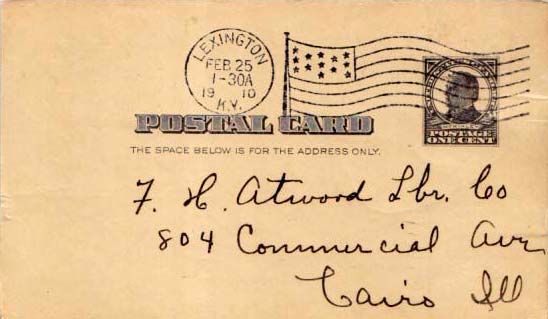 LEXINGTON
FEB 25
1-30A
1910
KY.
POSTAL CARD
POSTAGE
ONE CENT
THE SPACE BELOW IS FOR THE ADDRESS ONLY.
F. H. Atwood Lbr. Co
804 Commercial Ave
Cairo Ill